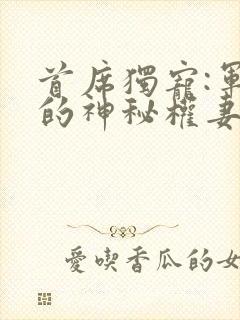 首席獨寵:軍
的神秘權妻
愛喫香瓜的女